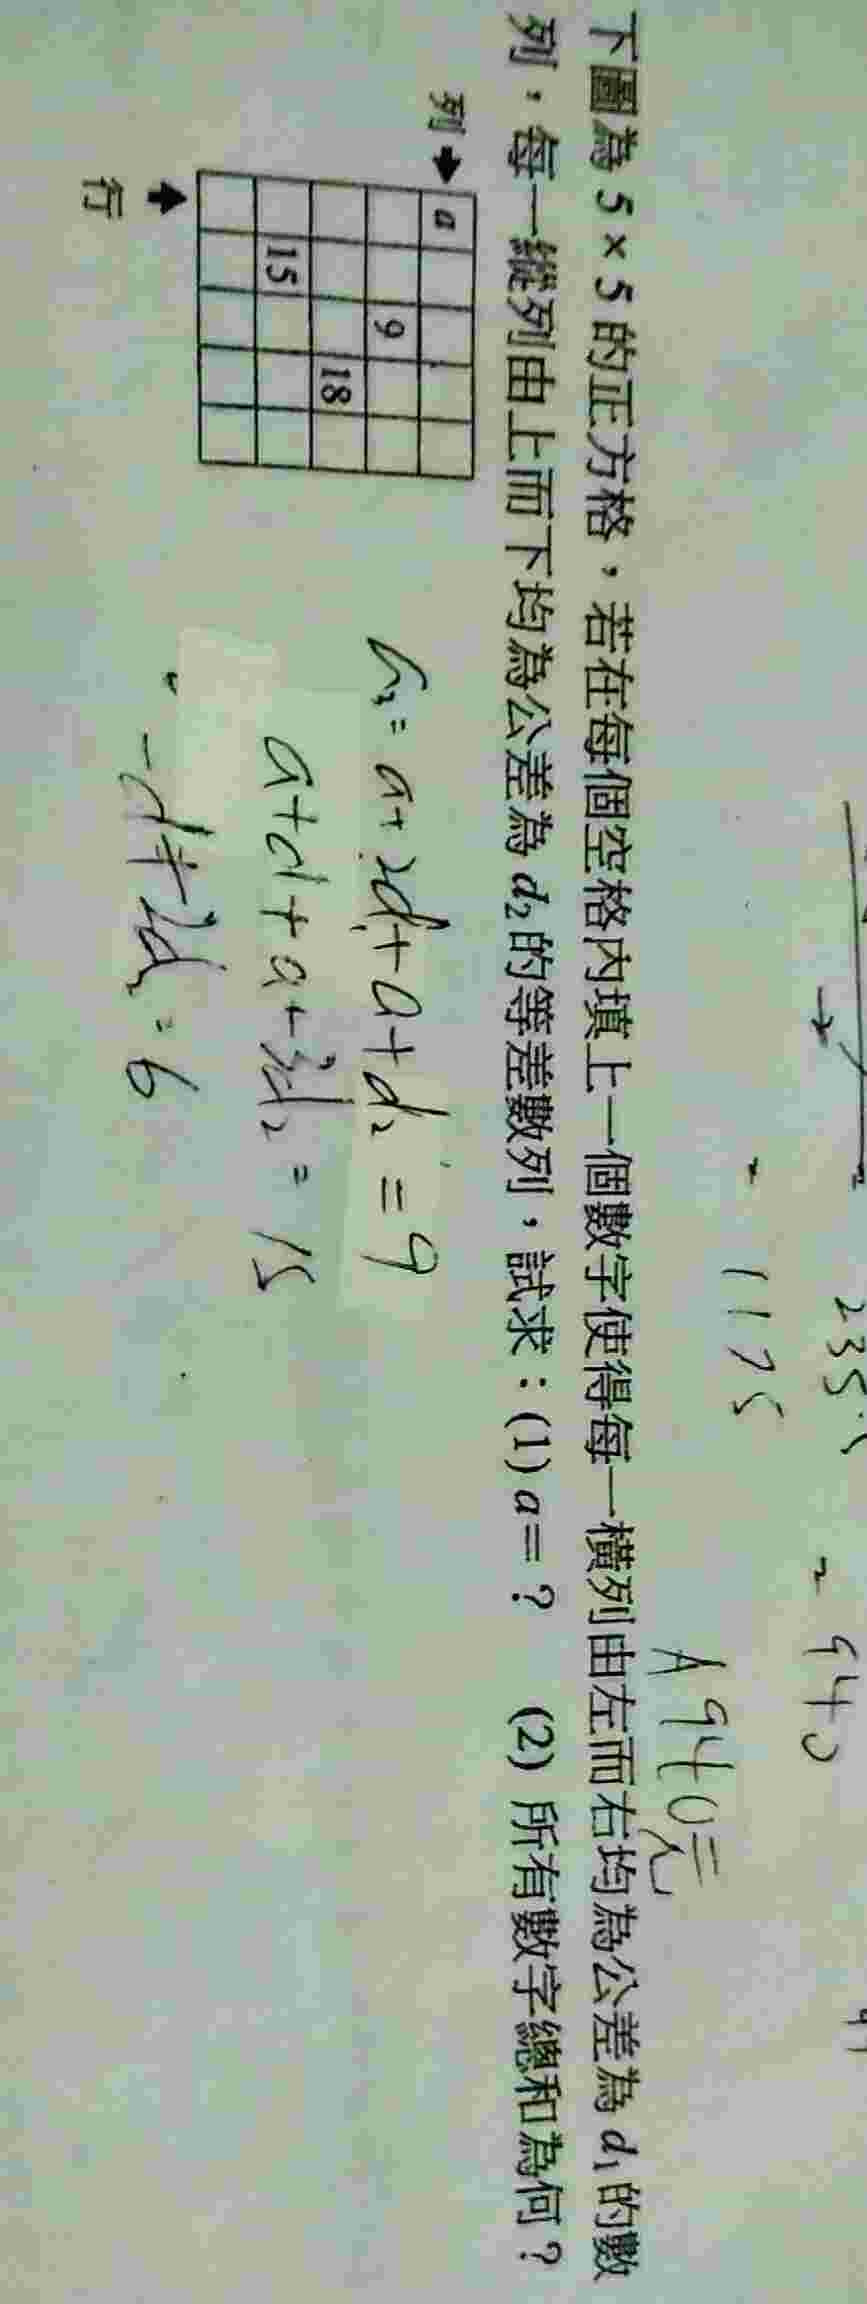 2355
= 940
1175
A 940元
下圖為 5×5 的正方格，若在每個空格內填上一個數字使得每一橫列由左而右均為公差為 d₁ 的數
列，每一縱列由上而下均為公差為 d₂ 的等差數列，試求：(1) a=？ (2) 所有數字總和為何？
列 → a
9
18
15
行
a+2d₁+a+d₂=9
a+d+a+3d₂=15
-d+2d₂=6